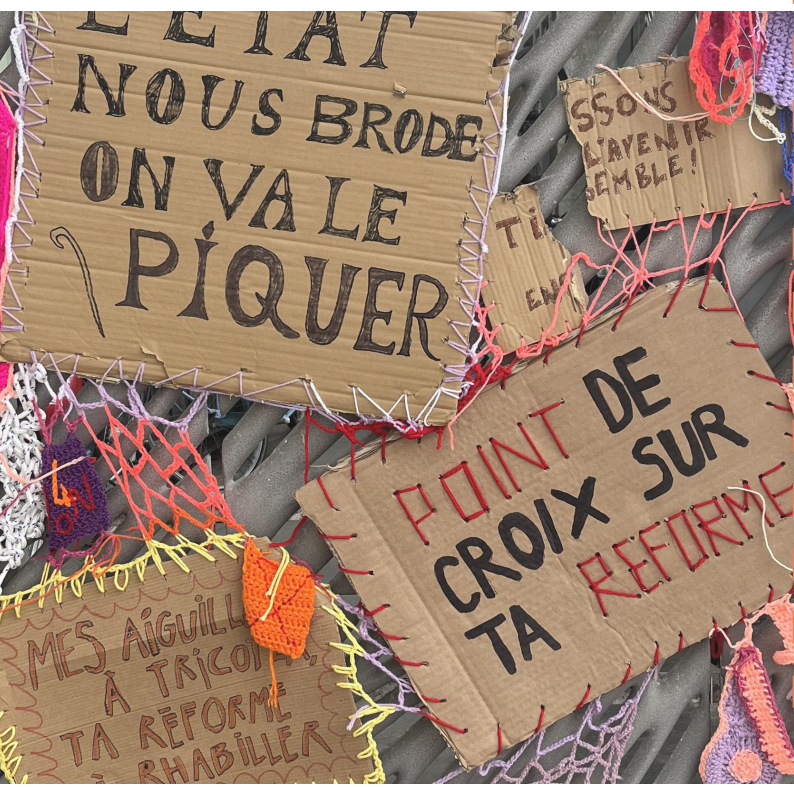 L'ÉTAT
NOUS BRODE
ON VA LE
PIQUER
SSONS
L'AVENIR
SEMBLE!
Ti
EN
POINT DE
CROIX SUR
TA REFORME
ON
MES AIGUILL
À TRICOTER,
TA RÉFORME
À RHABILLER